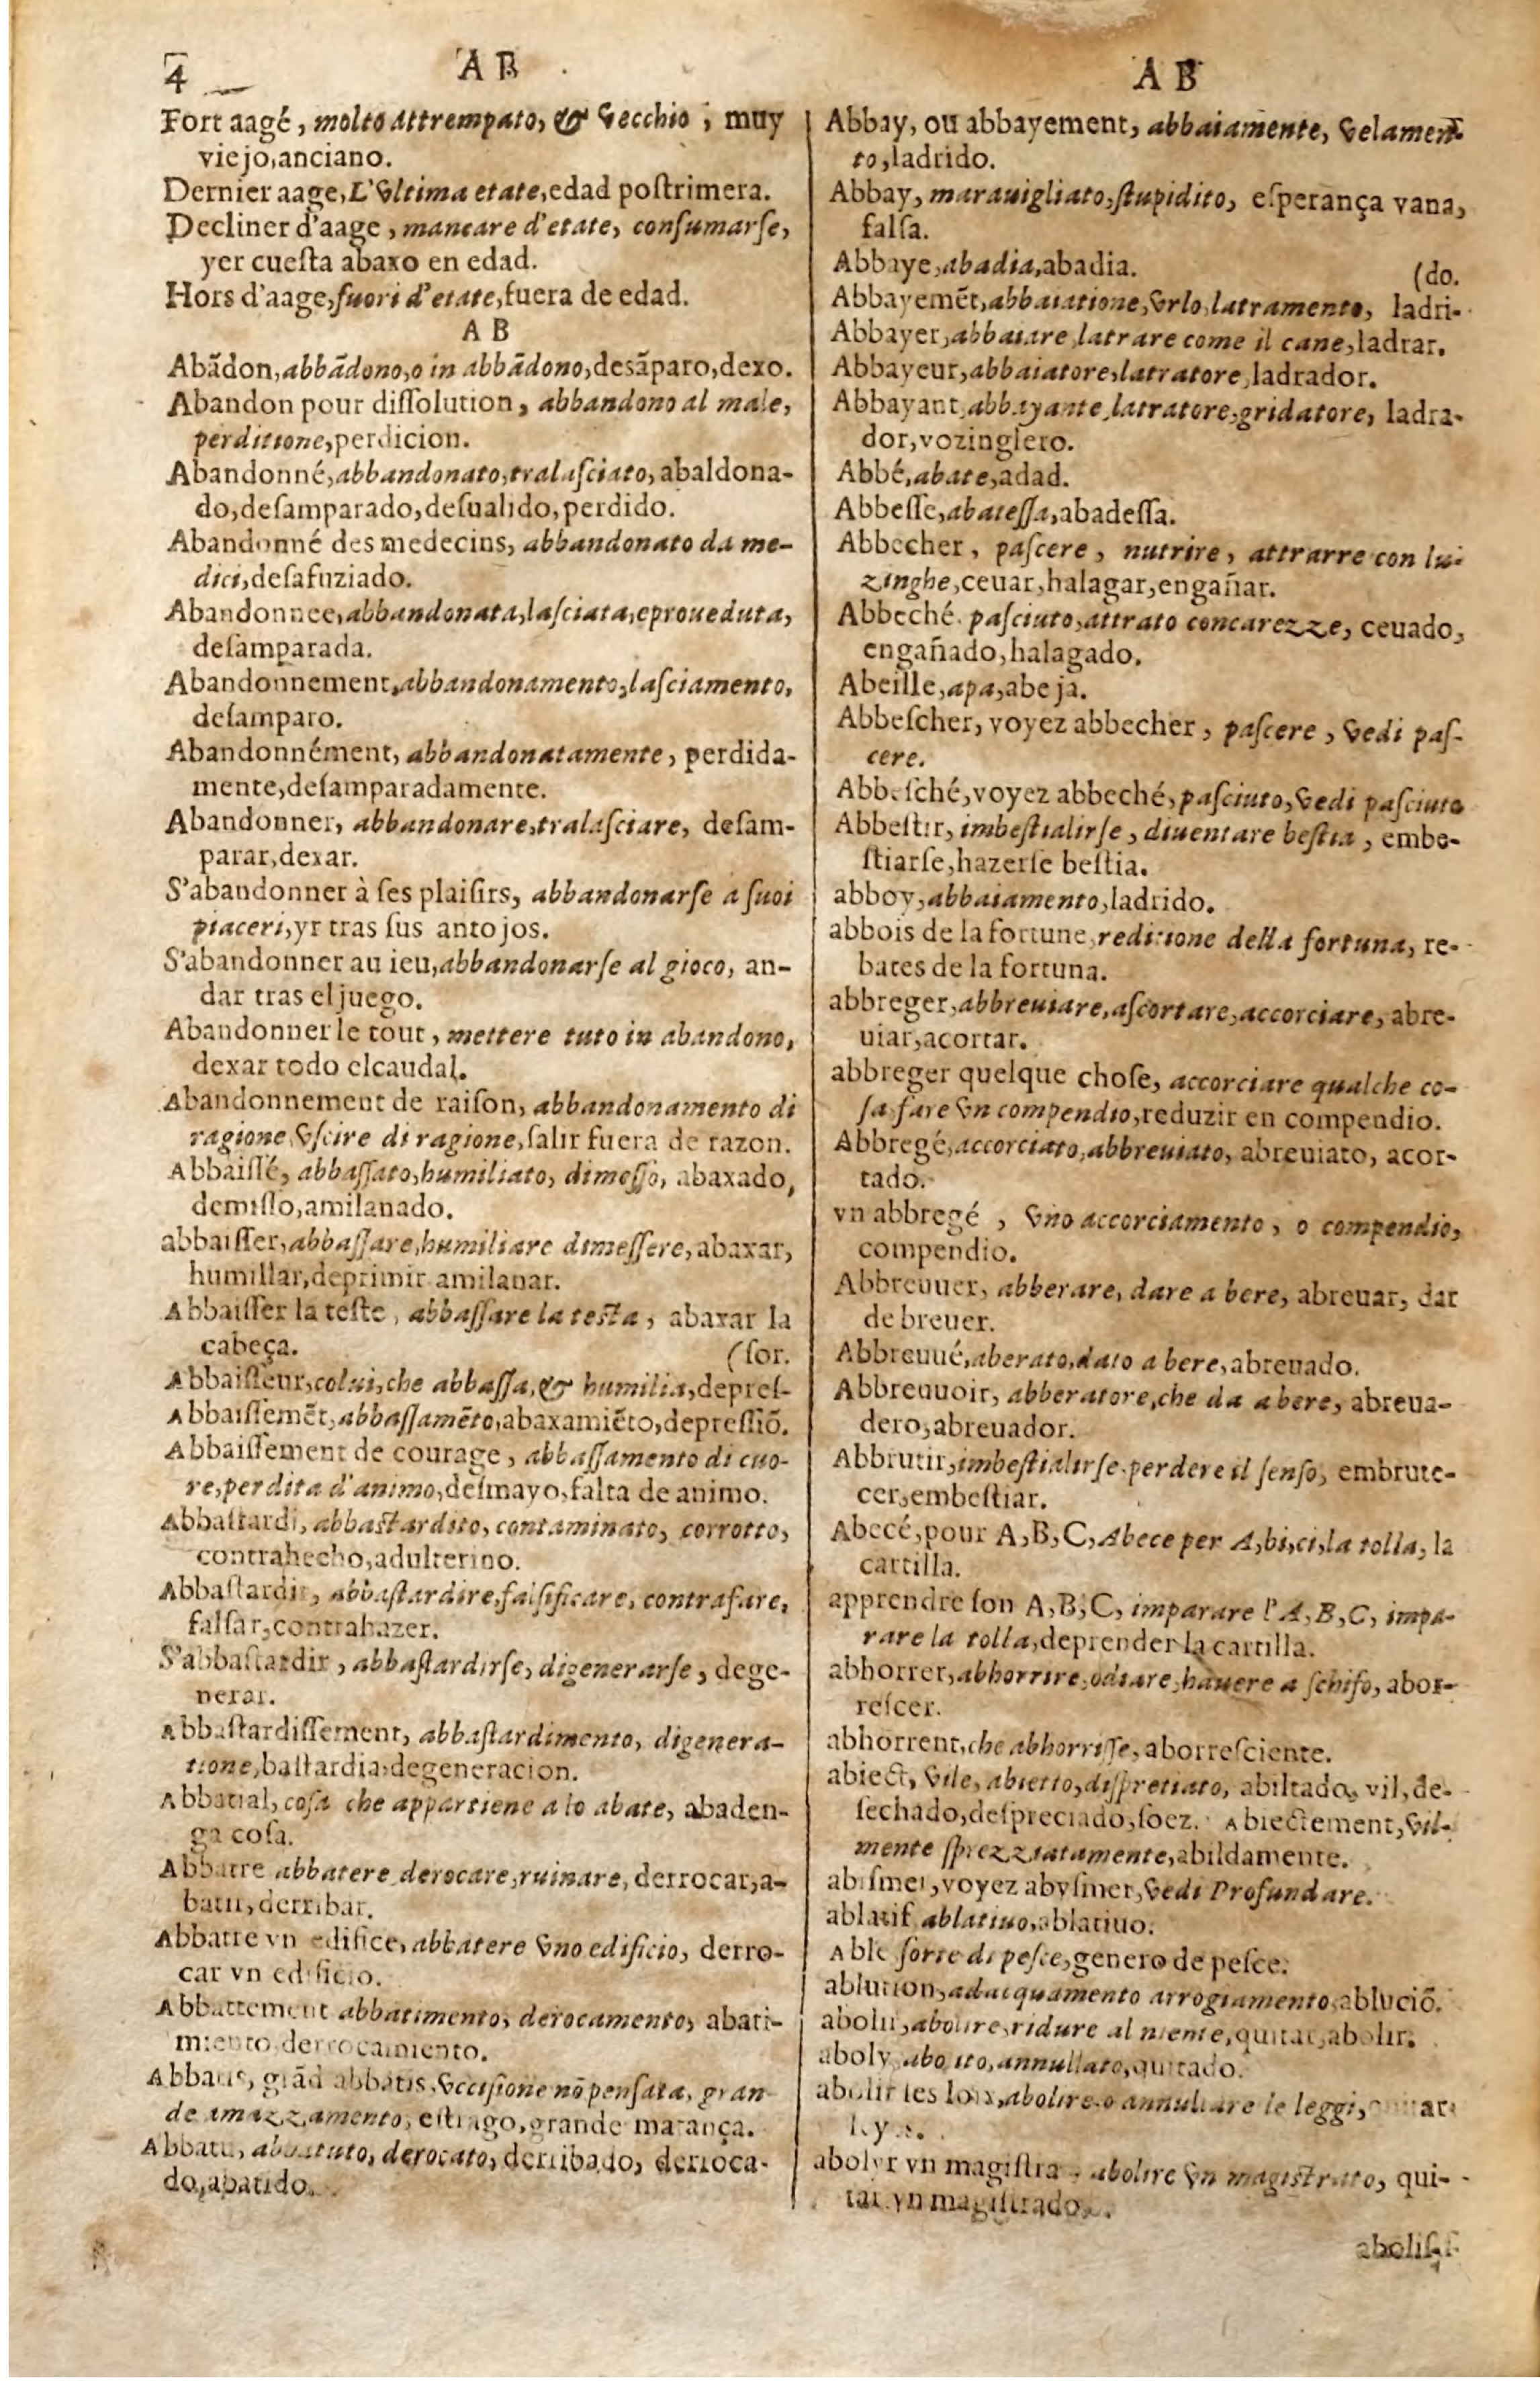 4
A B
Fort aagé, molto attrempato, & vecchio ; muy
viejo,anciano.
Dernier aage,L'vltima etate,edad poſtrimera.
Decliner d'aage , mancare d'etate, conſumarſe,
yer cueſta abaxo en edad.
Hors d'aage,fuori d'etate,fuera de edad.
A B
Abãdon,abbãdono,o in abbãdono,desãparo,dexo.
Abandon pour diſſolution, abbandono al male,
perditione,perdicion.
Abandonné,abbandonato,tralaſciato,abaldona-
do,deſamparado,deſualido,perdido.
Abandonné des medecins, abbandonato da me-
dici,deſafuziado.
Abandonnee,abbandonata,laſciata,eproueduta,
deſamparada.
Abandonnement,abbandonamento,laſciamento,
deſamparo.
Abandonnément, abbandonatamente, perdida-
mente,deſamparadamente.
Abandonner, abbandonare,tralaſciare, deſam-
parar,dexar.
S'abandonner à ſes plaiſirs, abbandonarſe a ſuoi
piaceri,yr tras ſus antojos.
S'abandonner au ieu,abbandonarſe al gioco, an-
dar tras el juego.
Abandonner le tout , mettere tuto in abandono,
dexar todo elcaudal.
Abandonnement de raiſon, abbandonamento di
ragione,vſcire di ragione,ſalir fuera de razon.
Abbaiſſé, abbaſſato,humiliato, dimeſſo, abaxado,
demiſſo,amilanado.
abbaiſſer,abbaſſare,humiliare dimeſſere,abaxar,
humillar,deprimir amilanar.
Abbaiſſer la teſte , abbaſſare la teſta , abaxar la
cabeça. (ſor.
Abbaiſſeur,colui,che abbaſſa,& humilia,depreſ-
Abbaiſſemẽt,abbaſſamẽto,abaxamiẽto,depreſſiõ.
Abbaiſſement de courage , abbaſſamento di cuo-
re,perdita d'animo,deſmayo,falta de animo.
Abbaſtardi, abbaſtardito, contaminato, corrotto,
contrahecho,adulterino.
Abbaſtardir, abbaſtardire,falſificare, contrafare,
falſar,contrahazer.
S'abbaſtardir , abbaſtardirſe, digenerarſe , dege-
nerar.
Abbaſtardiſſement, abbaſtardimento, digenera-
tione,baſtardia,degeneracion.
Abbatial, coſa che appartiene a lo abate, abaden-
ga coſa.
Abbatre abbatere derocare,ruinare, derrocar,a-
batir,derribar.
Abbatre vn edifice, abbatere vno edificio, derro-
car vn edificio.
Abbattement abbatimento, derocamento, abati-
miento,derrocamiento.
Abbatis, grãd abbatis,vcciſione nõ penſata, gran
de amazzamento, eſtrago,grande matança.
Abbatu, abbatuto, derocato, derribado, derroca-
do,abatido.
A B
Abbay, ou abbayement, abbaiamente, velamen-
to,ladrido.
Abbay, marauigliato,ſtupidito, eſperança vana,
falſa.
Abbaye,abadia,abadia. (do.
Abbayemẽt,abbaiatione,vrlo,latramento, ladri-
Abbayer,abbaiare,latrare come il cane,ladrar.
Abbayeur,abbaiatore,latratore,ladrador.
Abbayant,abbayante,latratore,gridatore, ladra-
dor,vozinglero.
Abbé,abate,adad.
Abbeſſe,abateſſa,abadeſſa.
Abbecher , paſcere , nutrire , attrarre con lu-
zinghe,ceuar,halagar,engañar.
Abbeché, paſciuto,attrato concarezze, ceuado,
engañado,halagado.
Abeille,apa,abeja.
Abbeſcher, voyez abbecher , paſcere , vedi paſ-
cere.
Abbeſché,voyez abbeché,paſciuto,vedi paſciuto
Abbeſtir, imbeſtialirſe , diuentare beſtia , embe-
ſtiarſe,hazerſe beſtia.
abboy,abbaiamento,ladrido.
abbois de la fortune,reditione della fortuna, re-
bates de la fortuna.
abbreger,abbreuiare,aſcortare,accorciare, abre-
uiar,acortar.
abbreger quelque choſe, accorciare qualche co-
ſa fare vn compendio,reduzir en compendio.
Abbregé,accorciato,abbreuiato, abreuiato, acor-
tado.
vn abbregé , vno accorciamento , o compendio,
compendio.
Abbreuuer, abberare, dare a bere, abreuar, dar
de breuer.
Abbreuué,aberato,dato a bere,abreuado.
Abbreuuoir, abberatore,che da a bere, abreua-
dero,abreuador.
Abbrutir,imbeſtialirſe,perdere il ſenſo, embrute-
cer,embeſtiar.
Abecé,pour A,B,C,Abece per A,bi,ci,la tolla, la
cartilla.
apprendre ſon A,B,C, imparare l'A,B,C, impa-
rare la tolla,deprender la cartilla.
abhorrer,abhorrire,odiare,hauere a ſchifo, abor-
reſcer.
abhorrent,che abhorriſſe,aborreſciente.
abiect, vile, abietto,diſpretiato, abiltado, vil,de-
ſechado,deſpreciado,ſoez. Abiectement,vil-
mente ſprezzatamente,abildamente.
abiſmer,voyez abyſmer,vedi Profundare.
ablatif ablatiuo,ablatiuo.
Able ſorte di peſce,genero de peſce.
ablution,adacquamento arrogiamento,abluciõ.
abolir,abolire,ridure al niente,quitar,abolir.
aboly abolito,annullato,quitado.
abolir les loix,abolire,o annullare le leggi, quitar
leyes.
abolyr vn magiſtra , abolire vn magiſtrato, qui-
tar vn magiſtrado.
aboliſ-